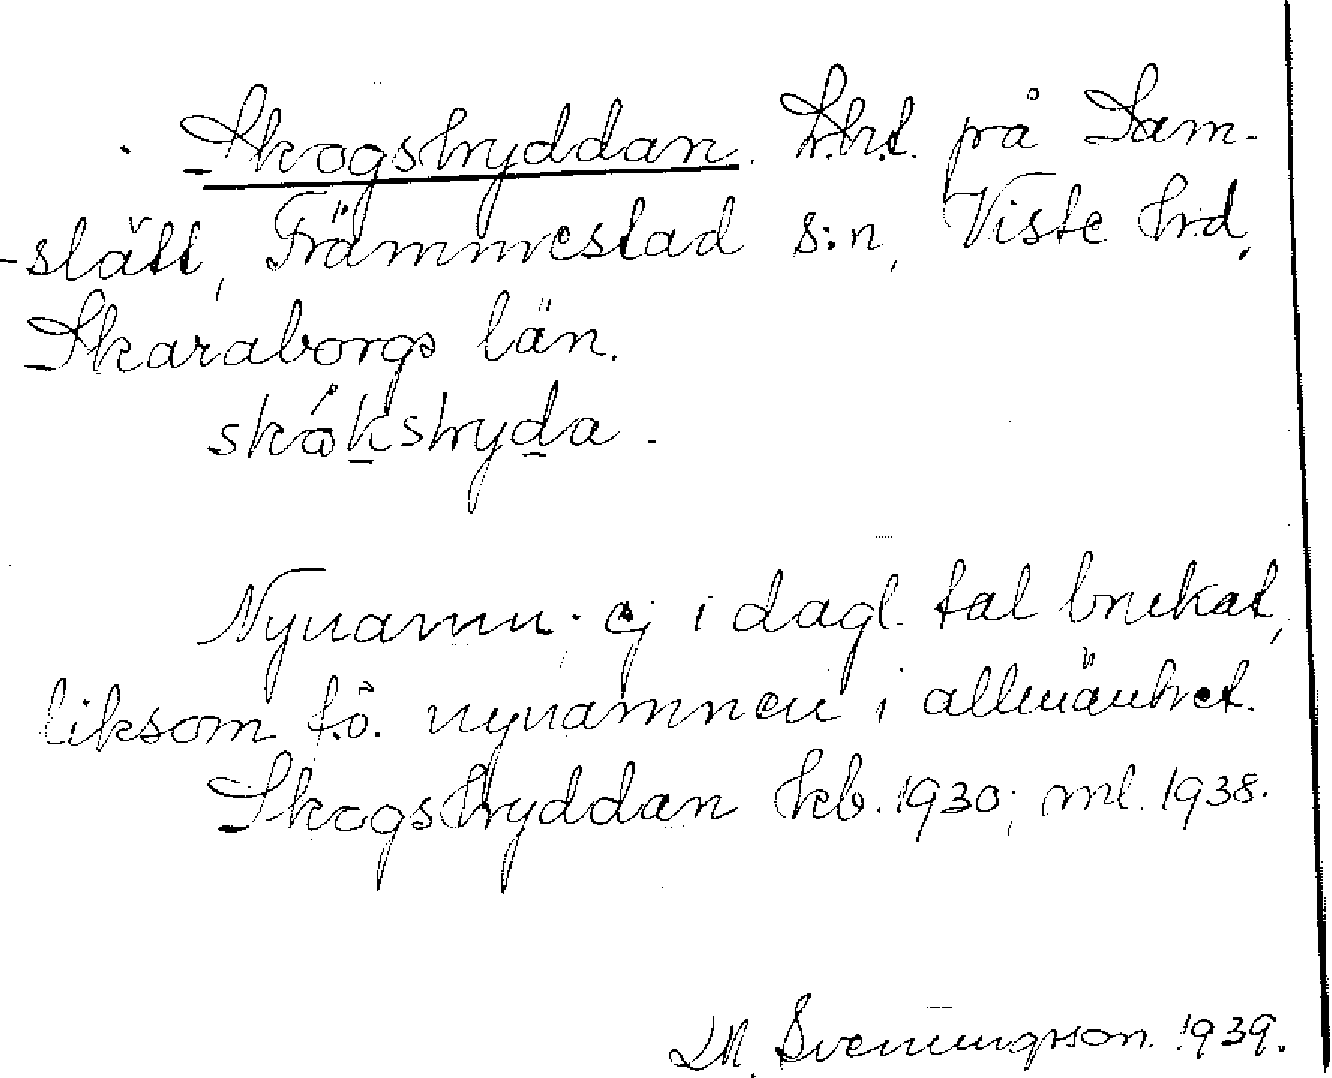 Skogshyddan. L.h.t. på Lam-
slätt, Främmestad s:n, Viste hrd,
Skaraborgs län.
skókshyda.
Nynamn; ej i dagl. tal brukat,
liksom f.ö. nynamnen i allmänhet.
Skogshyddan hfb. 1930; ml. 1938.
M. Svenungsson 1939.